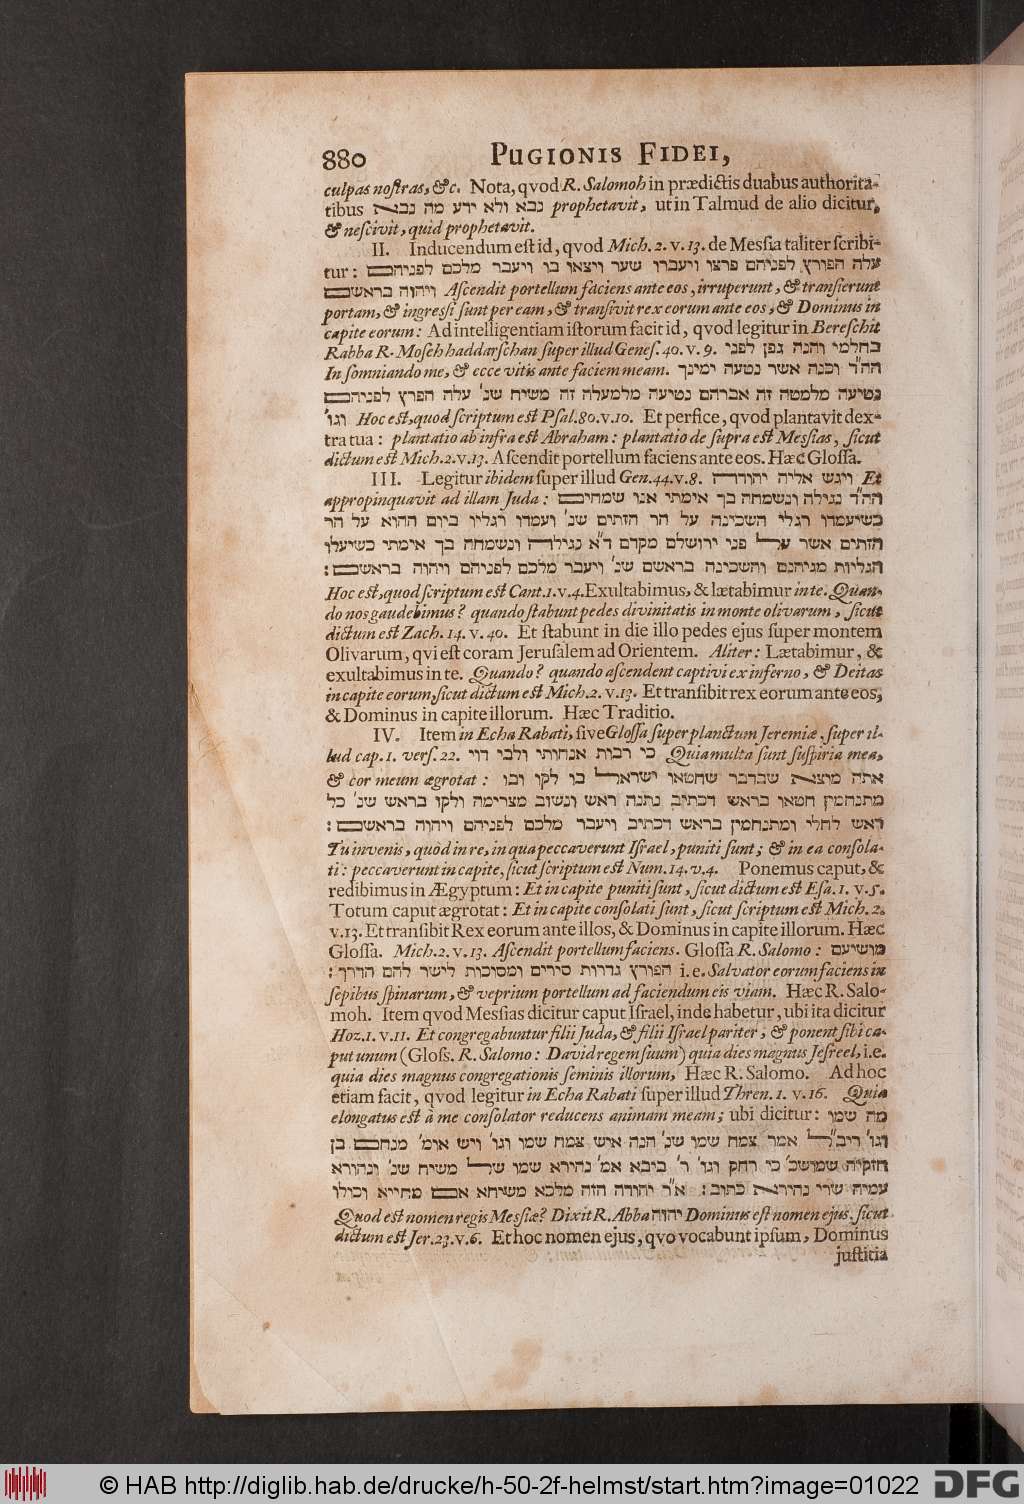 880 PUGIONIS FIDEI,
culpas nostras, &c. Nota, qvod R. Salomoh in prædictis duabus authorita-
tibus נבא ולא ידע מה נבא prophetavit, ut in Talmud de alio dicitur,
& nescivit, quid prophetavit.
II. Inducendum est id, qvod Mich. 2. v. 13. de Messia taliter scribi-
tur: עלה הפורץ לפניהם פרצו ויעברו שער ויצאו בו ויעבר מלכם לפניהם
ויהוה בראשם Ascendit portellum faciens ante eos, irruperunt, & transierunt
portam, & ingressi sunt per eam, & transivit rex eorum ante eos, & Dominus in
capite eorum: Ad intelligentiam istorum facit id, qvod legitur in Bereschit
Rabba R. Moseh haddarschan super illud Genes. 40. v. 9. בחלמי והנה גפן לפני
In somniando me, & ecce vitis ante faciem meam. הה״ד וכנה אשר נטעה ימינך
נטיעה מלמטה זה אברהם נטיעה מלמעלה זה משיח שנ׳ עלה הפרץ לפניהם
וגו׳ Hoc est, quod scriptum est Psal. 80. v. 10. Et perfice, qvod plantavit dex-
tra tua: plantatio ab infra est Abraham: plantatio de supra est Messias, sicut
dictum est Mich. 2. v. 13. Ascendit portellum faciens ante eos. Hæc Glossa.
III. Legitur ibidem super illud Gen. 44. v. 8. ויגש אליה יהודה Et
appropinquavit ad illam Juda: הה״ד נגילה ונשמחה בך אימתי אנו שמחים
כשיעמדו רגלי השכינה על הר הזתים שנ׳ ועמדו רגליו ביום ההוא על הר
הזתים אשר על פני ירושלם מקדם ד״א נגילה ונשמחה בך אימתי כשיעלו
הגליות מגיהנם והשכינה בראשם שנ׳ ויעבר מלכם לפניהם ויהוה בראשם:
Hoc est, quod scriptum est Cant. 1. v. 4. Exultabimus, & lætabimur in te. Quan-
do nos gaudebimus? quando stabunt pedes divinitatis in monte olivarum, sicut
dictum est Zach. 14. v. 40. Et stabunt in die illo pedes ejus super montem
Olivarum, qvi est coram Jerusalem ad Orientem. Aliter: Lætabimur, &
exultabimus in te. Quando? quando ascendent captivi ex inferno, & Deitas
in capite eorum, sicut dictum est Mich. 2. v. 13. Et transibit rex eorum ante eos,
& Dominus in capite illorum. Hæc Traditio.
IV. Item in Echa Rabati, sive Glossa super planctum Jeremiæ, super il-
lud cap. 1. vers. 22. כי רבות אנחותי ולבי דוי Quia multa sunt suspiria mea,
& cor meum ægrotat: אתה מוצא שבדבר שחטאו ישראל בו לקו ובו
מתנחמין חטאו בראש דכתיב נתנה ראש ונשוב מצרימה ולקו בראש שנ׳ כל
ראש לחלי ומתנחמין בראש דכתיב ויעבר מלכם לפניהם ויהוה בראשם:
Tu invenis, quod in re, in qua peccaverunt Israel, puniti sunt; & in ea consola-
ti: peccaverunt in capite, sicut scriptum est Num. 14. v. 4. Ponemus caput, &
redibimus in Ægyptum: Et in capite puniti sunt, sicut dictum est Esa. 1. v. 5.
Totum caput ægrotat: Et in capite consolati sunt, sicut scriptum est Mich. 2.
v. 13. Et transibit Rex eorum ante illos, & Dominus in capite illorum. Hæc
Glossa. Mich. 2. v. 13. Ascendit portellum faciens. Glossa R. Salomo: מושיעם
הפורץ גדרות סירים ומסוכות לישר להם הדרך: i.e. Salvator eorum faciens in
sepibus spinarum, & veprium portellum ad faciendum eis viam. Hæc R. Salo-
moh. Item qvod Messias dicitur caput Israel, inde habetur, ubi ita dicitur
Hoz. 1. v. 11. Et congregabuntur filii Juda, & filii Israel pariter, & ponent sibi ca-
put unum (Gloss. R. Salomo: David regem suum) quia dies magnus Jesreel, i.e.
quia dies magnus congregationis seminis illorum, Hæc R. Salomo. Ad hoc
etiam facit, qvod legitur in Echa Rabati super illud Thren. 1. v. 16. Quia
elongatus est à me consolator reducens animam meam; ubi dicitur: מה שמו
וגו׳ ריב״ל אמר צמח שמו שנ׳ הנה איש צמח שמו וגו׳ ויש אומ׳ מנחם בן
חזקיה שמושכ׳ כי רחק וגו׳ ר׳ ביבא אמ׳ נהירא שמו של משיח שנ׳ ונהורא
עמיה שרי נהירא כתוב: א״ר יהודה הזה מלכא משיחא אם מחייא וכולו
Quod est nomen regis Messiæ? Dixit R. Abba יהוה Dominus est nomen ejus, sicut
dictum est Jer. 23. v. 6. Et hoc nomen ejus, qvo vocabunt ipsum, Dominus
justitia
© HAB http://diglib.hab.de/drucke/h-50-2f-helmst/start.htm?image=01022 DFG